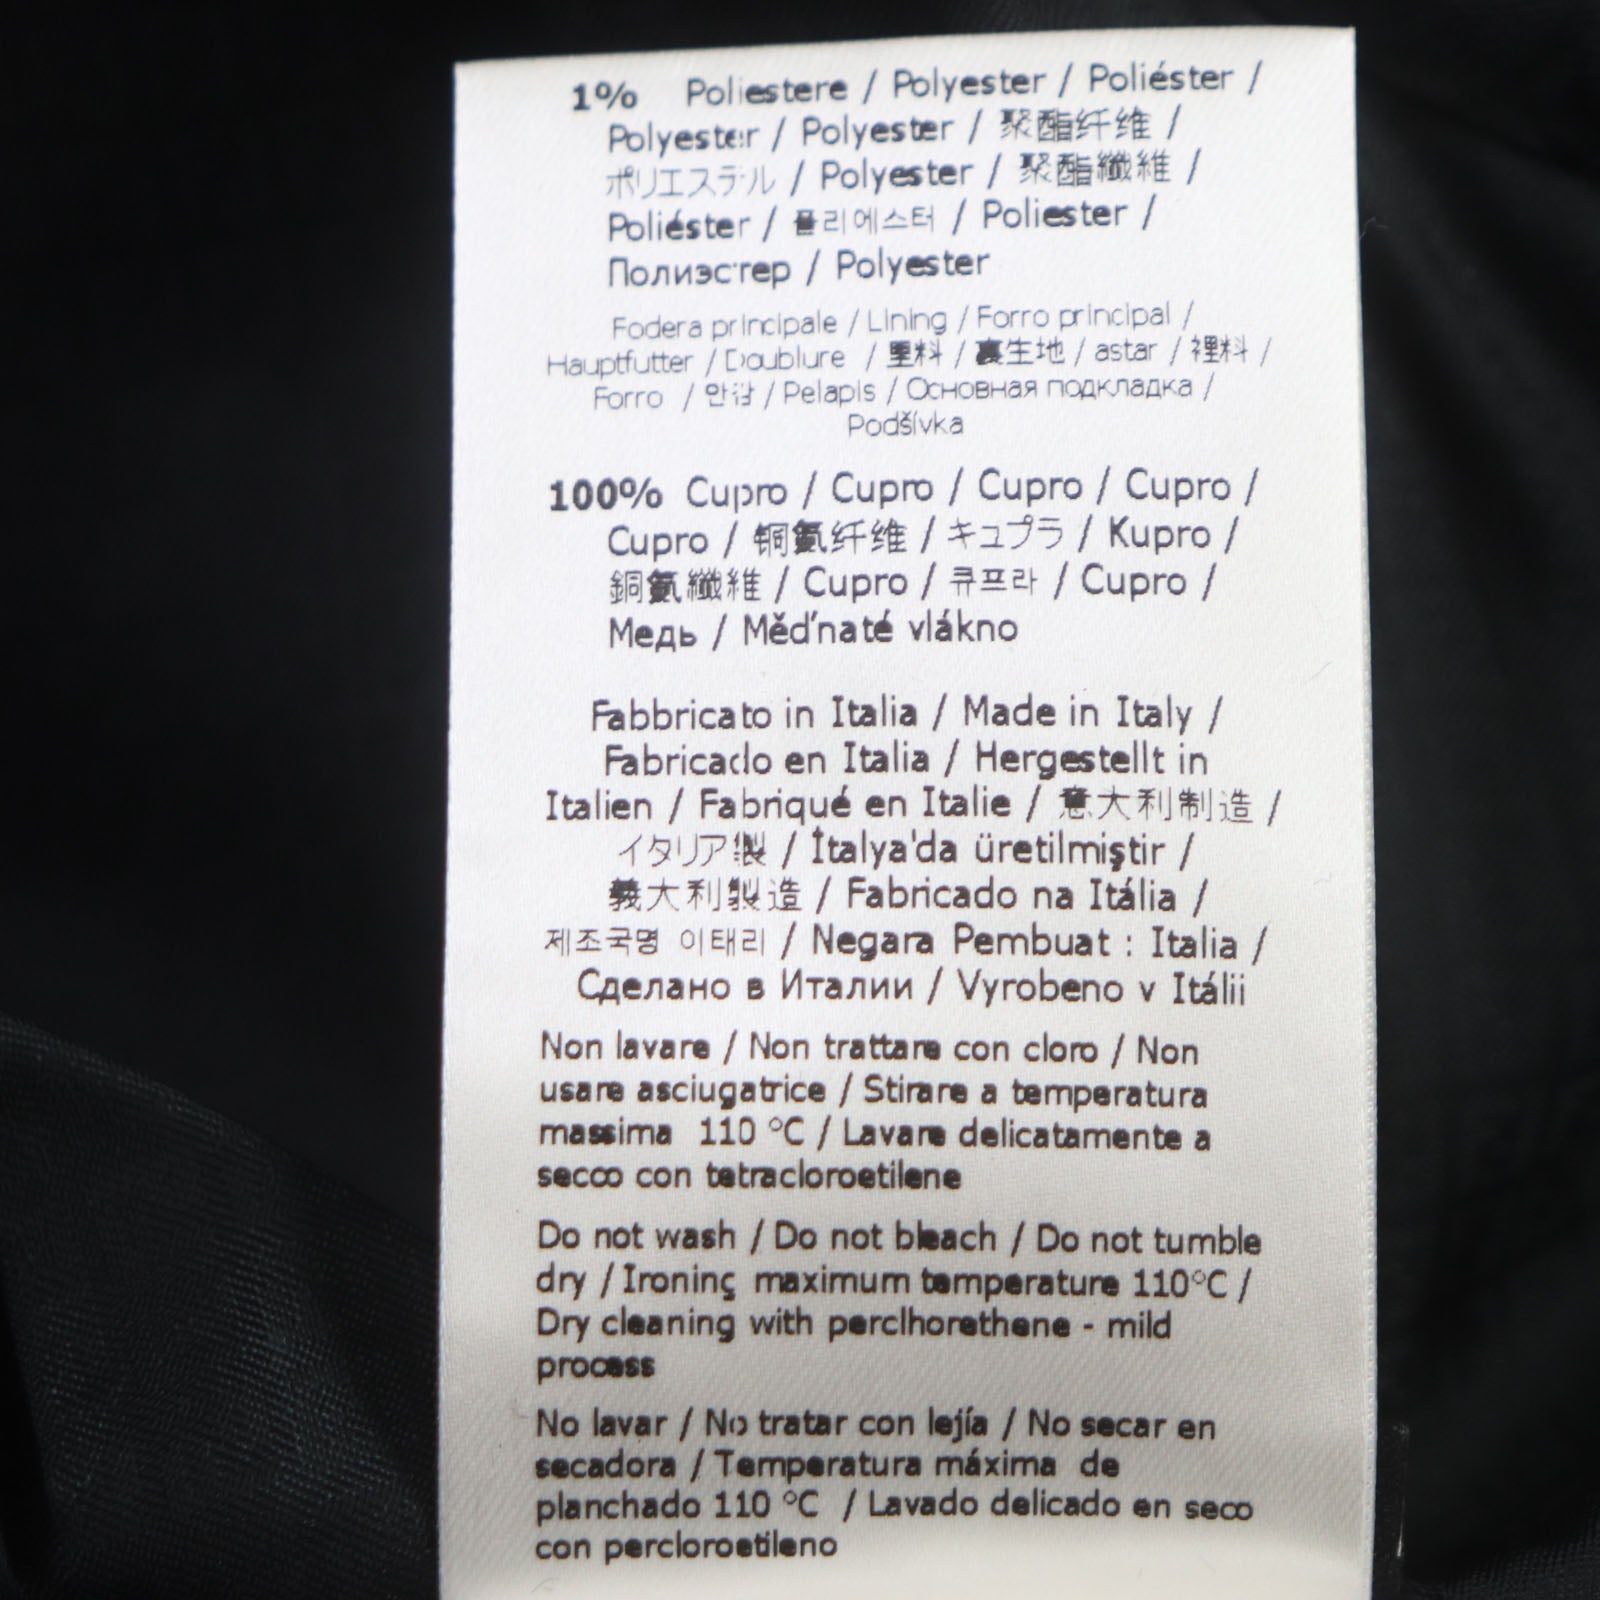 1% Poliestere / Polyester / Poliéster /
Polyester / Polyester / 聚酯纤维 /
ポリエステル / Polyester / 聚酯纖維 /
Poliéster / 폴리에스터 / Poliester /
Полиэстер / Polyester
Fodera principale / Lining / Forro principal /
Hauptfutter / Doublure / 里料 / 裏生地 / astar / 裡料 /
Forro / 안감 / Pelapis / Основная подкладка /
Podšívka
100% Cupro / Cupro / Cupro / Cupro /
Cupro / 铜氨纤维 / キュプラ / Kupro /
銅氨纖維 / Cupro / 큐프라 / Cupro /
Медь / Měďnaté vlákno
Fabbricato in Italia / Made in Italy /
Fabricado en Italia / Hergestellt in
Italien / Fabriqué en Italie / 意大利制造 /
イタリア製 / İtalya'da üretilmiştir /
義大利製造 / Fabricado na Itália /
제조국명 이태리 / Negara Pembuat : Italia /
Сделано в Италии / Vyrobeno v Itálii
Non lavare / Non trattare con cloro / Non
usare asciugatrice / Stirare a temperatura
massima 110 °C / Lavare delicatamente a
secco con tetracloroetilene
Do not wash / Do not bleach / Do not tumble
dry / Ironing maximum temperature 110°C /
Dry cleaning with perclhorethene - mild
process
No lavar / No tratar con lejía / No secar en
secadora / Temperatura máxima de
planchado 110 °C / Lavado delicado en seco
con percloroetileno